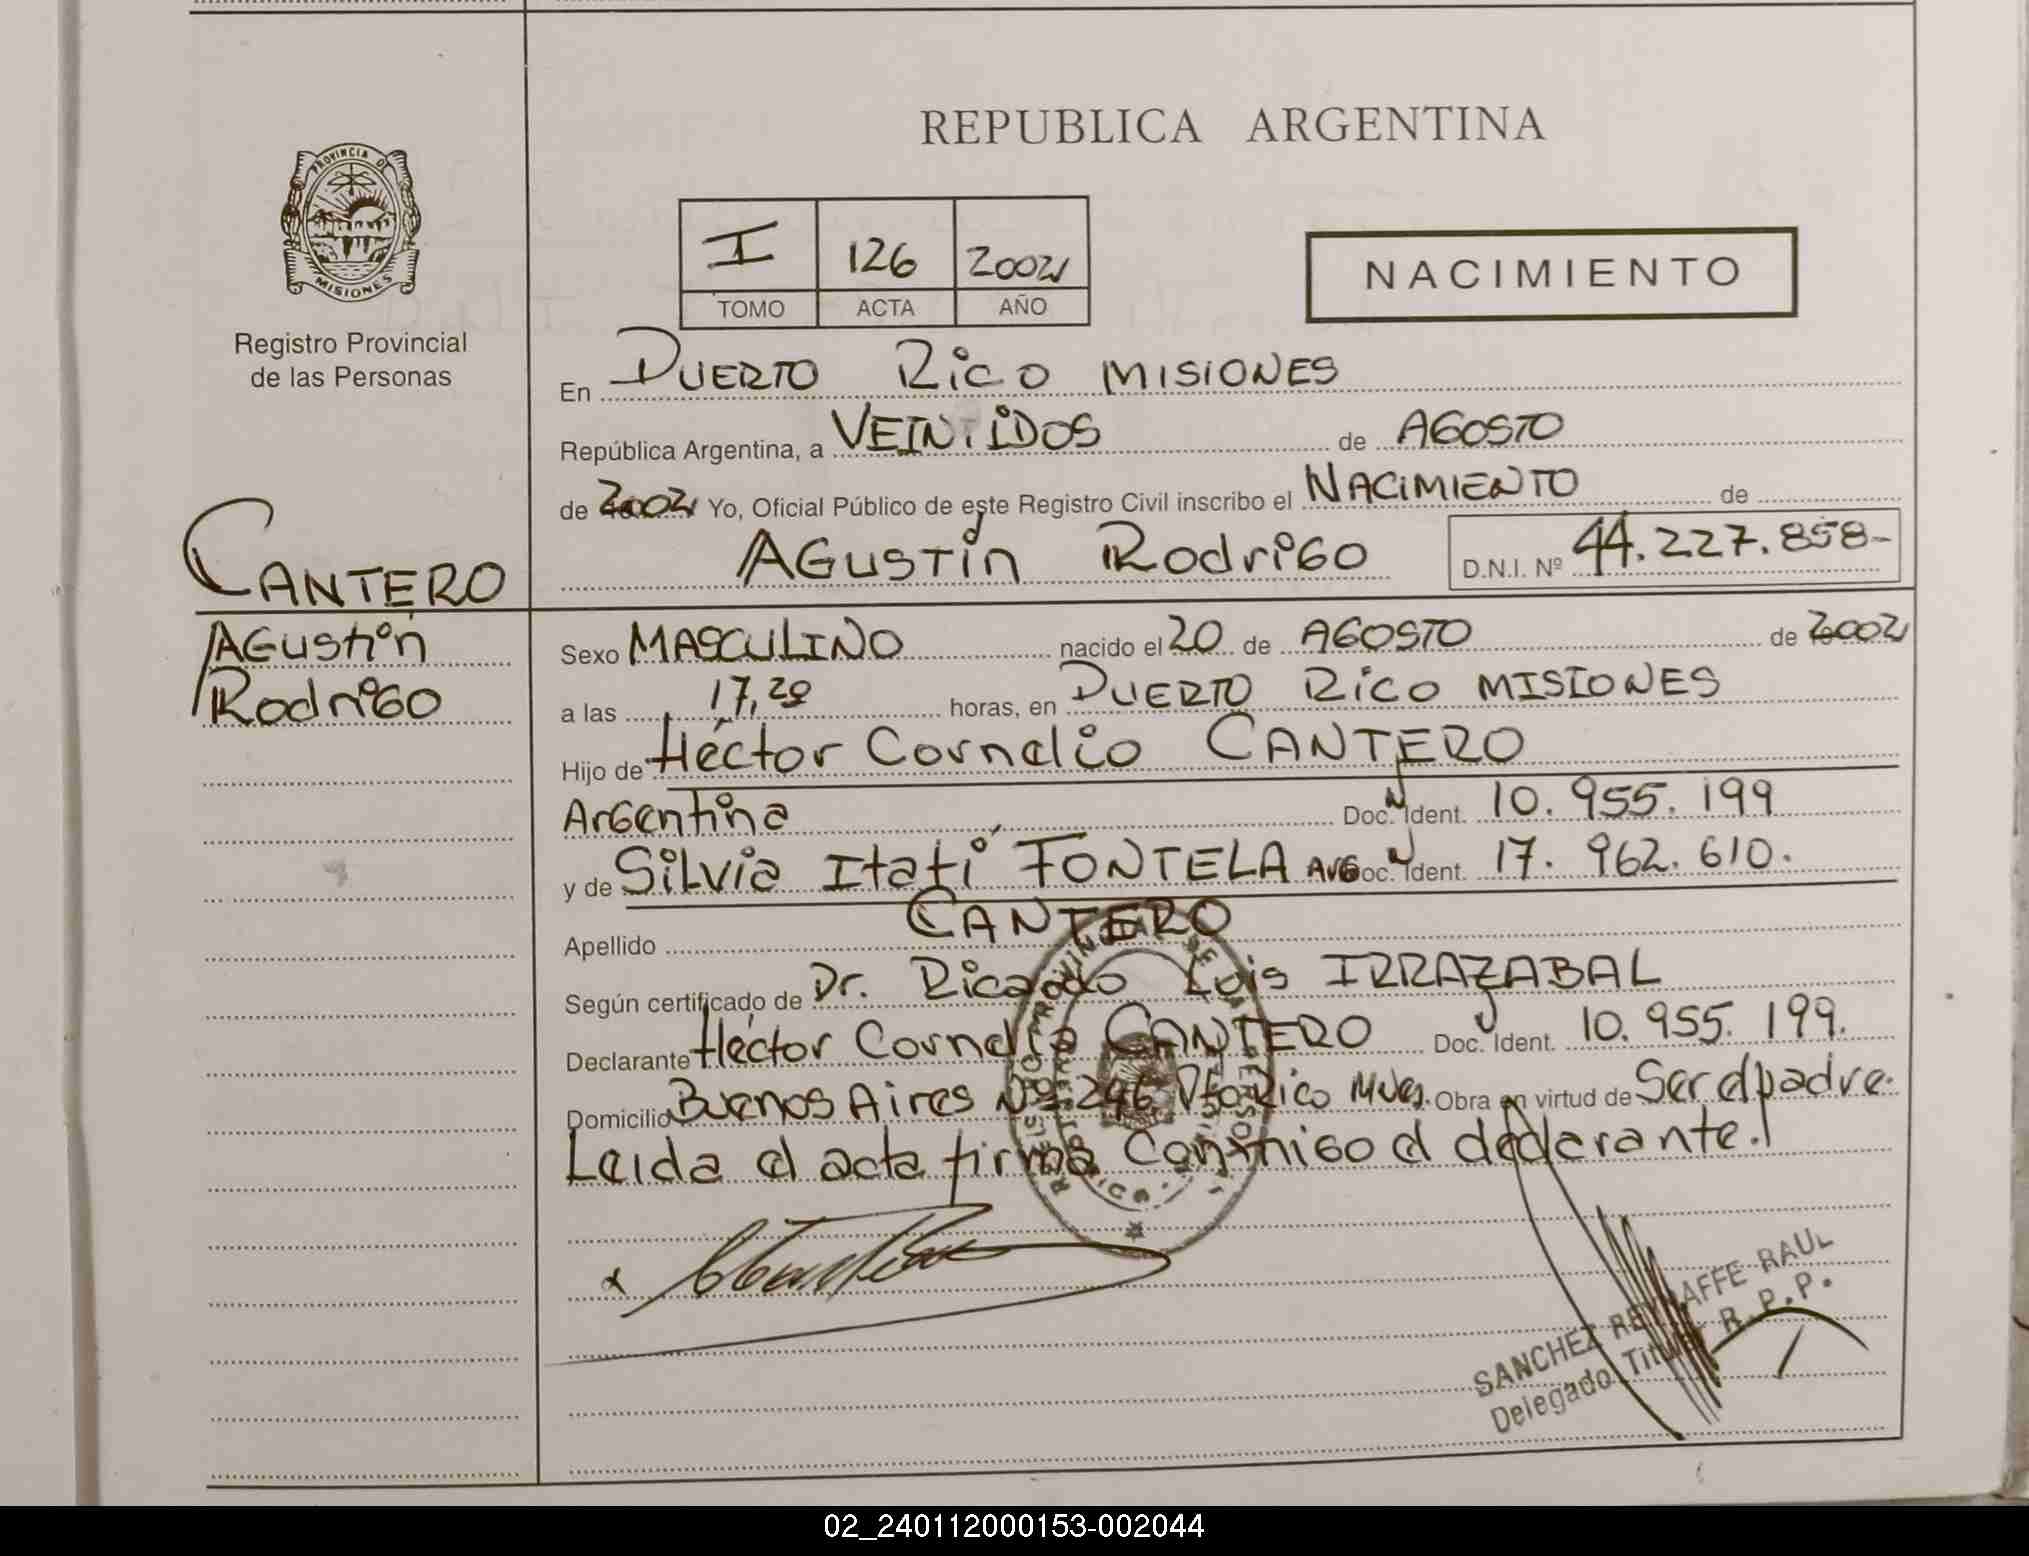 REPUBLICA ARGENTINA
PROVINCIA DE
MISIONES
Registro Provincial
de las Personas
I 126 2002
TOMO ACTA AÑO
NACIMIENTO
En PUERTO RICO MISIONES
República Argentina, a VEINTIDOS de AGOSTO
de 2002 Yo, Oficial Público de este Registro Civil inscribo el NACIMIENTO de
AGUSTÍN RODRIGO D.N.I. Nº 44.227.858-
CANTERO
AGUSTÍN
RODRIGO
Sexo MASCULINO nacido el 20 de AGOSTO de 2002
a las 17,20 horas, en PUERTO RICO MISIONES
Hijo de Héctor Cornelio CANTERO
Argentina Doc. Ident. 10.955.199
y de Silvia Itatí FONTELA ARG Doc. Ident. 17.962.610.
Apellido CANTERO
Según certificado de Dr. Ricardo Luis IRRAZABAL
Declarante Héctor Cornelio CANTERO Doc. Ident. 10.955.199.
Domicilio Buenos Aires Nº 246 Pto Rico Mnes. Obra en virtud de Ser el padre.
Leida el acta firma Conmigo el declarante.
SANCHEZ RAUL
Delegado Titular R.P.P.
02_240112000153-002044